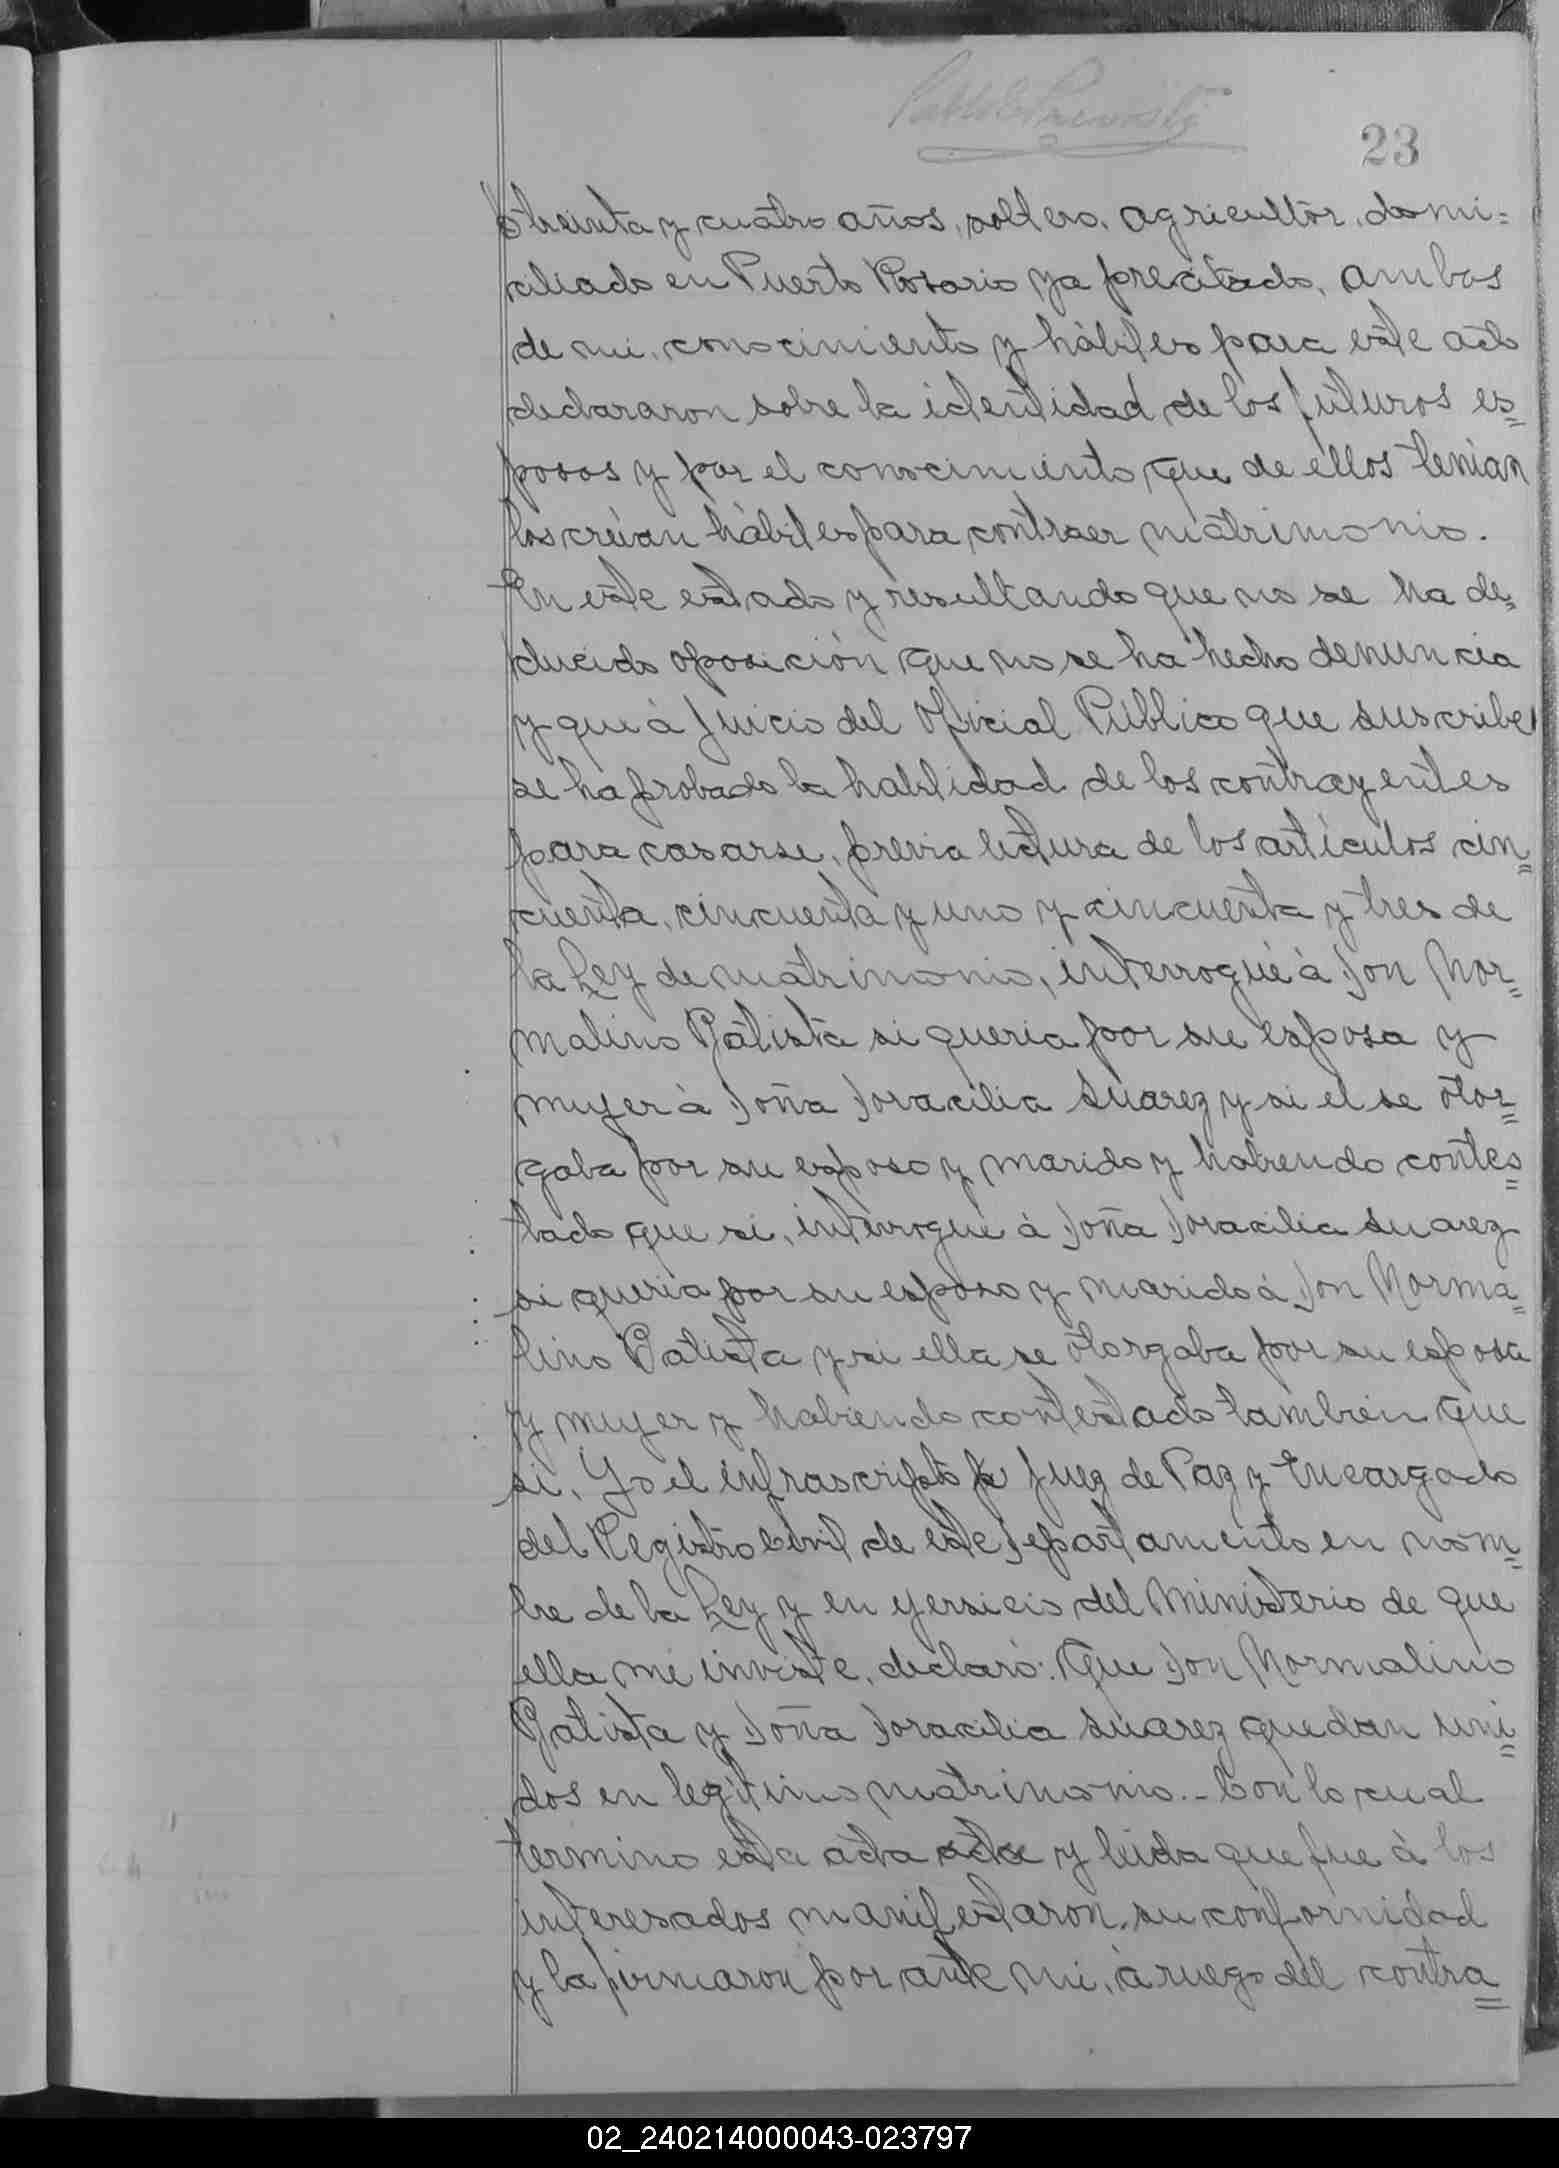 23
treinta y cuatro años, soltero, agricultor, domi=
ciliado en Puerto Rosario ya precitado, ambos
de mi conocimiento y hábiles para este acto
declararon sobre la identidad de los futuros es=
posos y por el conocimiento que de ellos tenian
los creian hábiles para contraer matrimonio.
En este estado y resultando que no se ha de=
ducido oposición que no se ha hecho denuncia
y que á juicio del Oficial Público que suscribe
se ha probado la habilidad de los contrayentes
para casarse, previa lectura de los artículos cin=
cuenta, cincuenta y uno y cincuenta y tres de
la Ley de matrimonio, interrogué á Don Nor=
malino Batista si queria por su esposa y
mujer á Doña Doracilia Suarez y si el se otor=
gaba por su esposo y marido y habiendo contes=
tado que si, interrogué á Doña Doracilia Suarez
si queria por su esposo y marido á Don Norma=
lino Batista y si ella se otorgaba por su esposa
y mujer y habiendo contestado tambien que
si, Yo el infrascripto Juez de Paz y Encargado
del Registro Civil de este Departamento en nom=
bre de la Ley y en yersicio del Ministerio de que
ella me inviste, declaro: Que Don Normalino
Batista y Doña Doracilia Suarez quedan uni=
dos en legitimo matrimonio.- Con lo cual
termino esta acta y leida que fue á los
interesados manifestaron su conformidad
y la firmaron por ante mi, á ruego del contra=
02_240214000043-023797